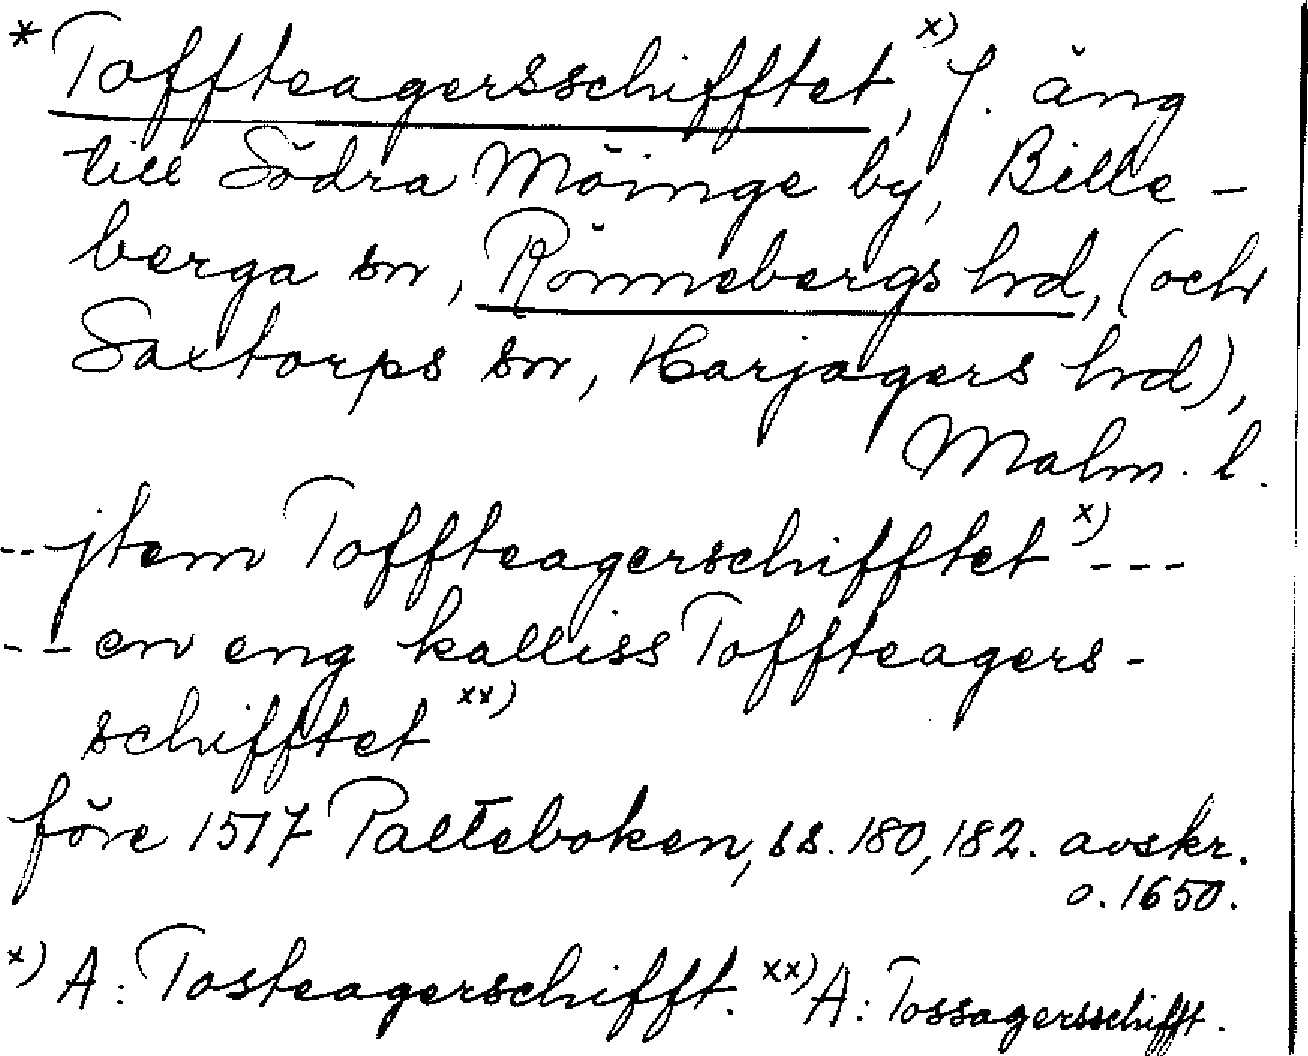 * Toffteagersschifftet, x) f. äng
till Södra Möinge by, Bille-
berga sn, Rönnebergs hrd, (och
Saxtorps sn, Harjagers hrd),
Malm. l.
-- jtem Toffteagerschifftet x) ---
--- en eng kalliss Toffteagers-
schifftet xx)
före 1517 Palteboken, ss. 180, 182. avskr.
o. 1650.
x) A: Tosteagerschifft. xx) A: Tossagersschifft.